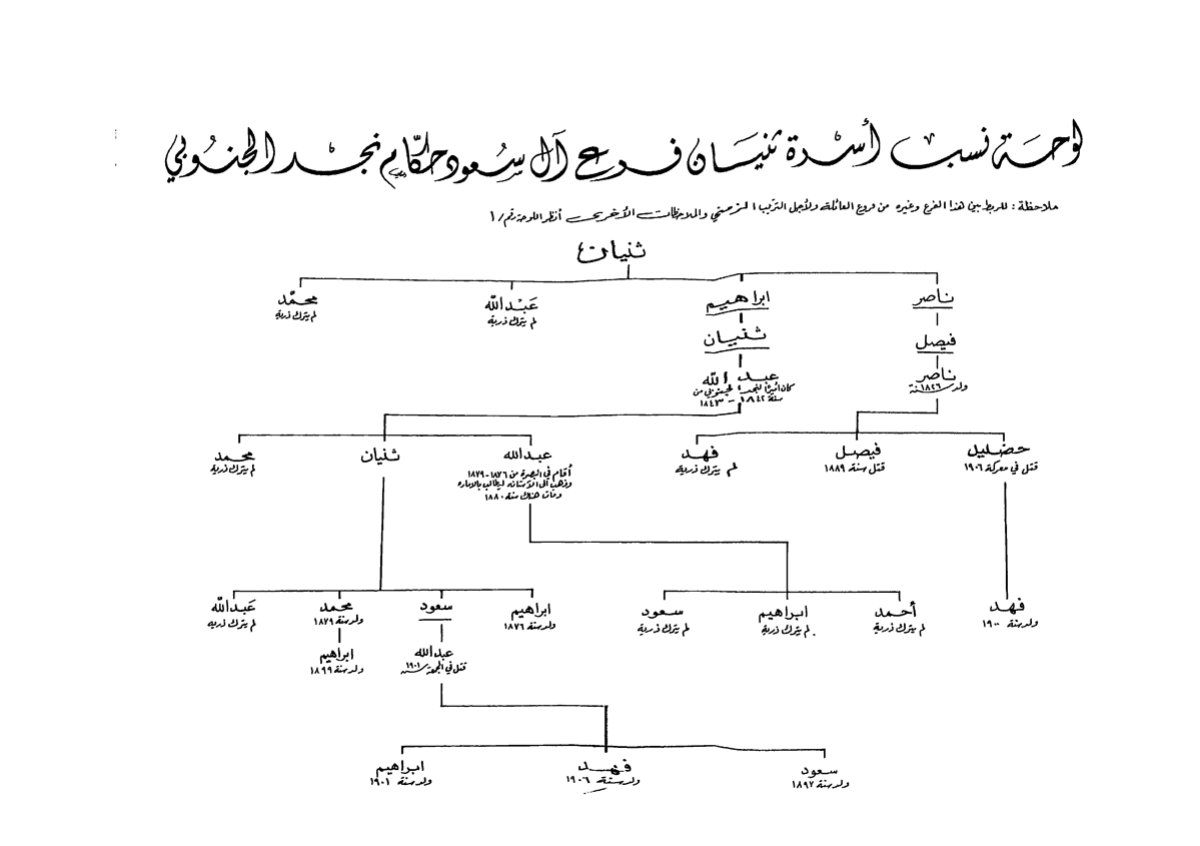 لوحة نسب أسرة ثنيان فرع آل سعود حكام نجد الجنوبي
ملاحظة : للربط بين هذا الفرع وغيره من فروع العائلة ولأجل الترتيب الزمني والملاحظات الأخرى أنظر اللوحة رقم /١
ثنيان
ناصر
ابراهيم
عبدالله
لم يترك ذرية
محمد
لم يترك ذرية
فيصل
ثنيان
ناصر
ولد سنة ١٨٤٦
عبد الله
كان أميراً لنجد الجنوبي من
سنة ١٨٤٢ - ١٨٤٣
حضليل
قتل في معركة ١٩٠٦
فيصل
قتل سنة ١٨٨٩
فهد
لم يترك ذرية
عبدالله
أقام في البصرة من ١٨٧٦-١٨٧٩
وذهب الى الآستانه ليطالب بالاماره
ومات هناك سنة ١٨٨٠
ثنيان
محمد
لم يترك ذرية
فهد
ولد سنة ١٩٠٠
أحمد
لم يترك ذرية
ابراهيم
لم يترك ذرية
سعود
لم يترك ذرية
ابراهيم
ولد سنة ١٨٧٦
سعود
محمد
ولد سنة ١٨٧٩
عبدالله
لم يترك ذرية
عبدالله
قتل في سنة ١٩٠١
ابراهيم
ولد سنة ١٨٩٩
سعود
ولد سنة ١٨٩٢
فهد
ولد سنة ١٩٠٦
ابراهيم
ولد سنة ١٩٠١